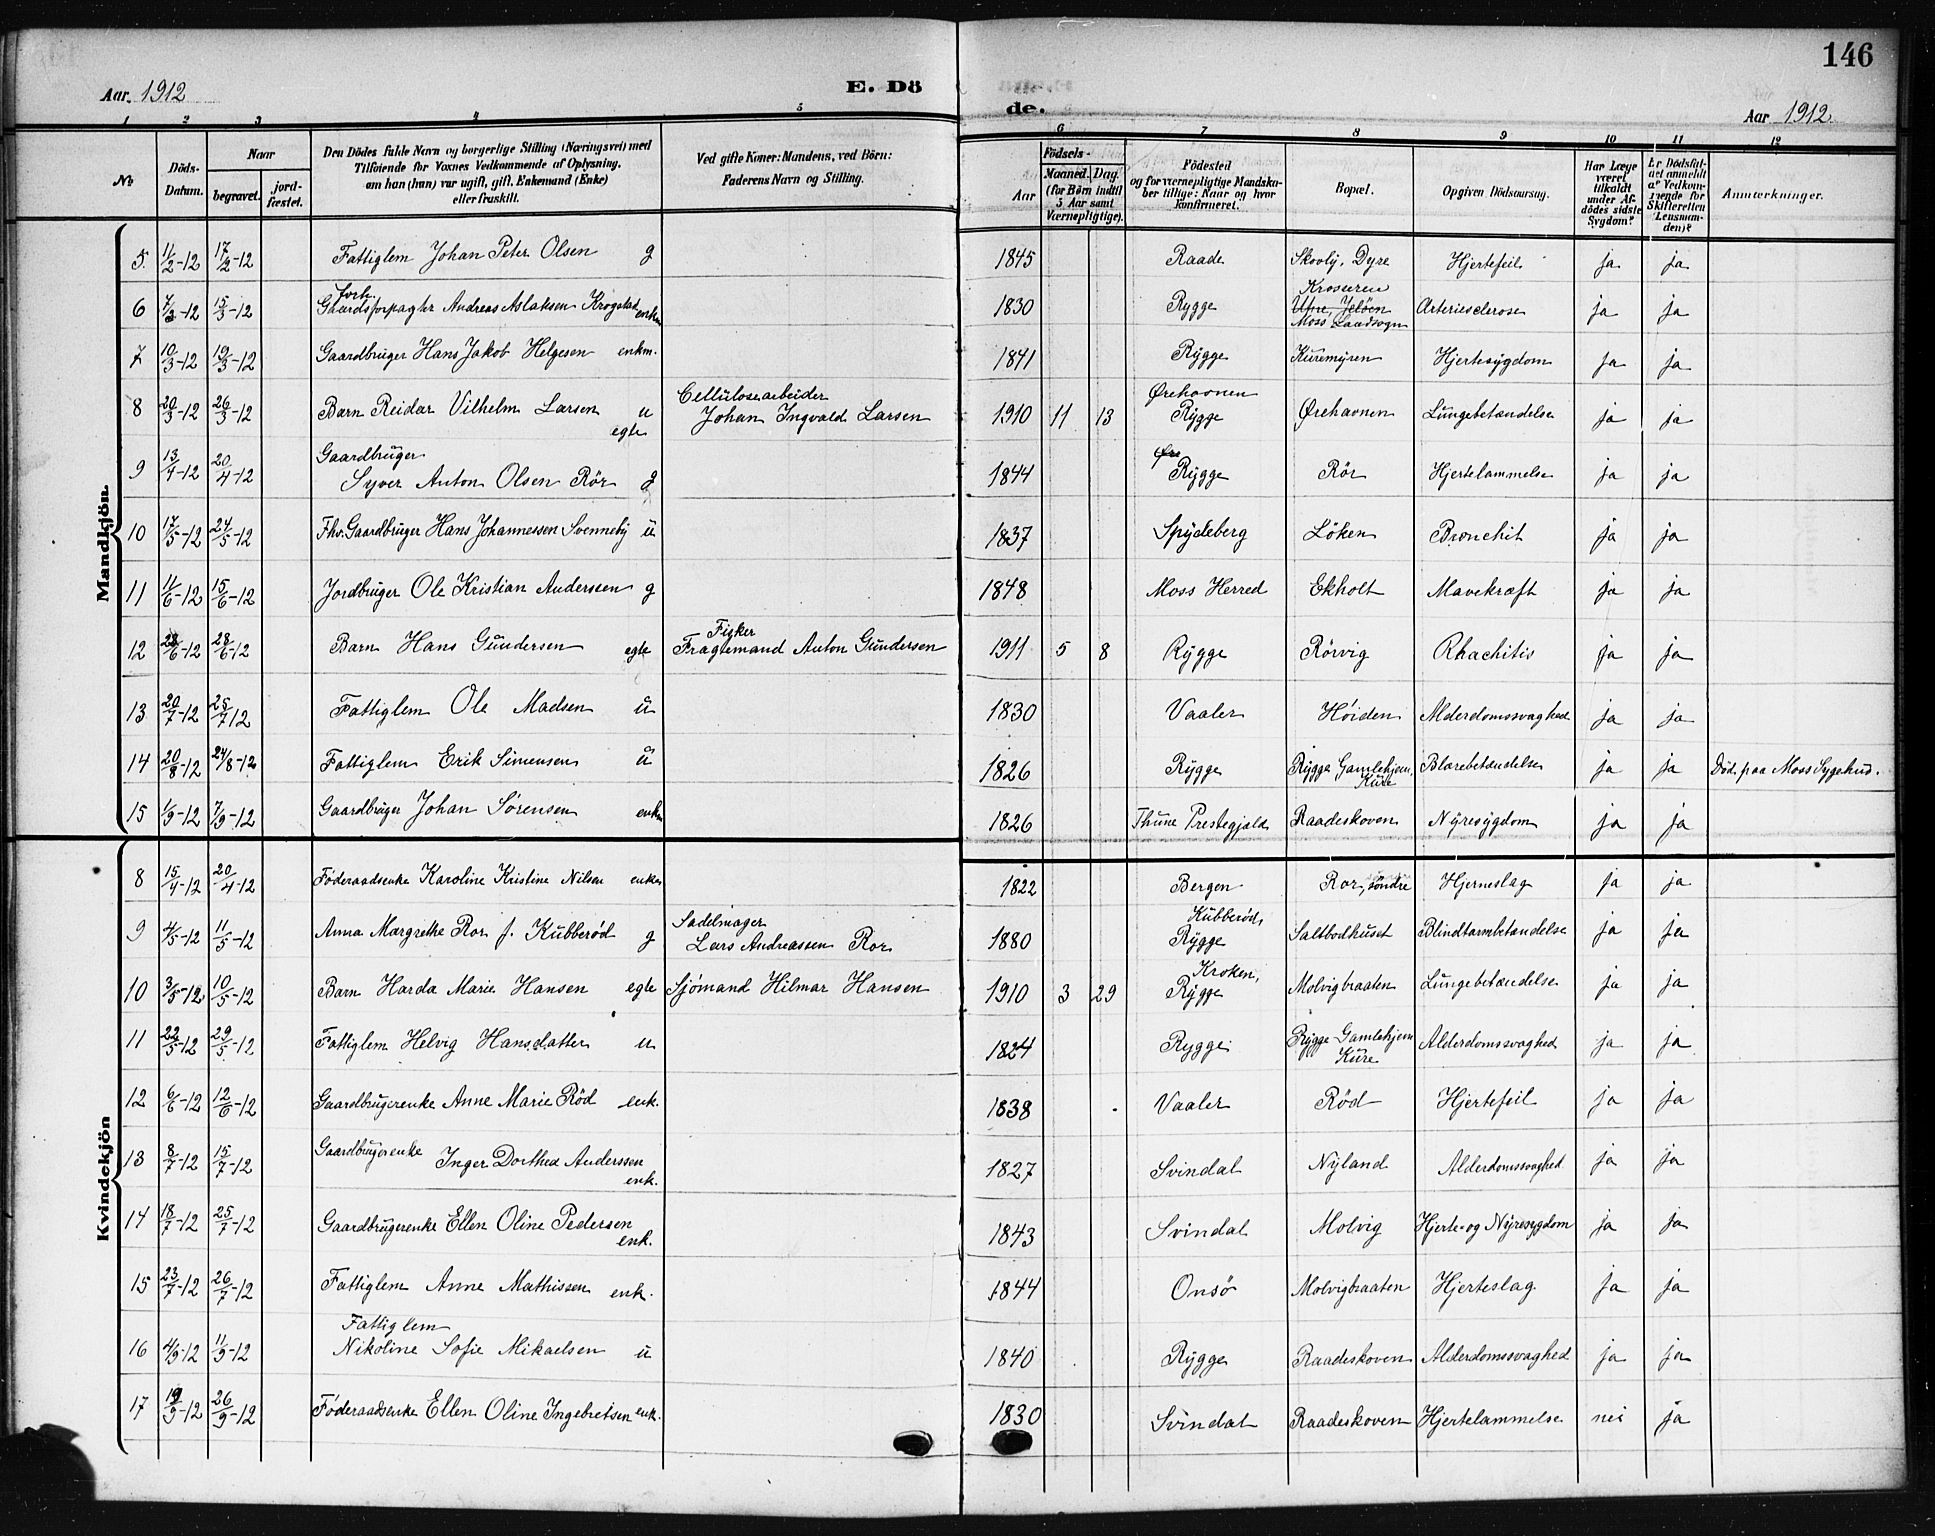 146
Aar 1912
E. Dö
de.
Aar 1912.
1 2 3 4 5 6 7 8 9 10 11 12
No
Döds-Datum.
Naar
begravet.
jord-fæstet.
Den Dödes fulde Navn og borgerlige Stilling (Næringsvei) med
Tilföiende for Voxnes Vedkommende af Oplysning,
om han (hun) var ugift, gift, Enkemand (Enke)
eller fraskilt.
Ved gifte Koner: Mandens, ved Börn:
Faderens Navn og Stilling.
Födsels-
Aar
Maaned. Dag.
(for Börn indtil
5 Aar samt
Værnepligtige).
Födested
og for værnepligtige Mandska-
ber tillige: Naar og hvor
konfirmeret.
Bopæl.
Opgiven Dödsaarsag.
Har Læge
været
tilkaldt
under Af-
dödes sidste
Sygdom?
Er Dödsfal-
det anmeldt
af Vedkom-
mende for
Skifteretten
(Lensman-
den)?
Anmærkninger.
Mandkjön.
5. 11/2-12 17/2-12 Fattiglem Johan Peter Olsen g 1845 Raade Skovly, Dyre Hjertefeil ja ja
6 7/3-12 15/3-12 forh. Gaardsforpagter Andreas Aslaksen Krogstad enkm 1830 Rygge Kroseren Ufne, Jeløen Moss Landsogn Arteriesclerose ja ja
7 10/3-12 19/3-12 Gaardbruger Hans Jakob Helgesen enkm. 1841 Rygge Kuremyren Hjertesygdom ja ja
8 20/3-12 26/3-12 Barn Reidar Vilhelm Larsen u egte Cellulosearbeider Johan Ingvald Larsen 1910 11 13 Ørehavnen Rygge Ørehavnen Lungebetændelse ja ja
9 13/4-12 20/4-12 Gaardbruger Syver Anton Olsen Rör g 1844 Øre Rygge Rör Hjertelammelse ja ja
10 17/5-12 24/5-12 Fhv. Gaardbruger Hans Johannessen Svenneby u 1837 Spydeberg Löken Bronchit ja ja
11 11/6-12 15/6-12 Jordbruger Ole Kristian Anderssen g 1848 Moss Herred Ekholt Mavekræft ja ja
12 23/6-12 28/6-12 Barn Hans Gundersen egte Fisker Fragtemand Anton Gundersen 1911 5 8 Rygge Rörvig Rhachitis ja ja
13 20/7-12 25/7 12 Fattiglem Ole Madsen u 1830 Vaaler Höiden Alderdomssvaghed ja ja
14 20/8-12 24/8-12 Fattiglem Erik Simensen u 1826 Rygge Rygge Gamlehjem, Kure Blærebetændelse ja ja Död paa Moss Sygehus.
15 1/9-12 7/9-12 Gaardbruger Johan Sørensen enkm 1826 Thune Prestegjæld Raadeskoven Nyresygdom ja ja
Kvindekjön
8 15/4-12 20/4-12 Föderaadsenke Karoline Kristine Nilsen enke 1822 Bergen Ror, söndre Hjerneslag ja ja
9 4/5-12 11/5-12 Anna Margrethe Ror f. Kubberød g Sadelmager Lars Andreassen Ror 1880 Kubberød, Rygge Saltbodhuset Blindtarmbetændelse ja ja
10 3/5-12 10/5-12 Barn Harda Marie Hansen egte Sjømand Hilmar Hansen 1910 3 29 Kroken, Rygge Molvigbraaten Lungebetændelse ja ja
11 22/5-12 29/5-12 Fattiglem Helvig Hansdatter u 1824 Rygge Rygge Gamlehjem Kure Alderdomssvaghed ja ja
12 6/6-12 12/6-12 Gaardbrugerenke Anne Marie Röd enk. 1838 Vaaler Röd Hjertefeil ja ja
13 8/7-12 15/7-12 Gaardbrugerenke Inger Dorthea Anderssen enk. 1827 Svindal Nyland Alderdomssvaghed ja ja
14 18/7-12 25/7-12 Gaardbrugerenke Ellen Oline Pedersen enk. 1843 Svindal Molvig Hjerte- og Nyresygdom ja ja
15 23/7-12 26/7-12 Fattiglem Anne Mathissen enk. 1844 Onsö Molvigbraaten Hjerteslag ja ja
16 4/9-12 11/9-12 Fattiglem Nikoline Sofie Mikaelsen u 1840 Rygge Raadeskoven Alderdomssvaghed ja ja
17 19/9-12 26/9-12 Föderaadsenke Ellen Oline Ingebretsen enk. 1830 Svindal Raadeskoven Hjertelammelse nei ja